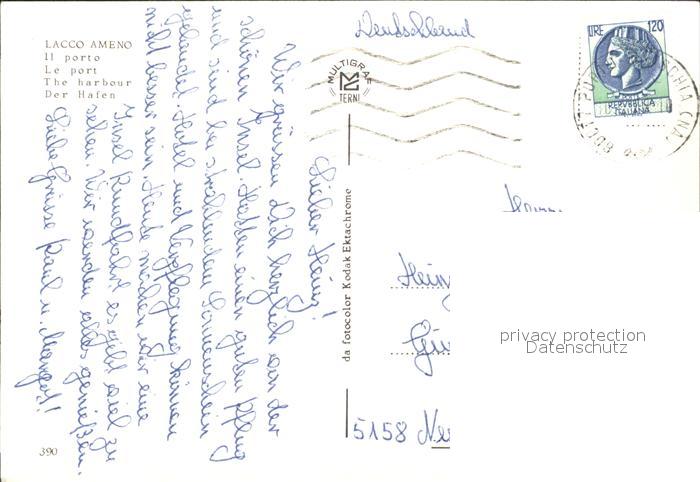 LACCO AMENO
Il porto
Le port
The harbour
Der Hafen
390
Lieber Heinz!
Wir grüssen Dich herzlich von der
schönen Insel. Hatten einen guten Pflug
und sind bei strahlendem Sonnenschein
gelandet. Hotel und Verpflegung können
nicht besser sein. Heute machen wir eine
Insel Rundfahrt es gibt viel zu
sehen. Wir werden alles genießen.
Liebe Grüsse Paul u. Margot!
MULTIGRAF
TERNI
da fotocolor Kodak Ektachrome
Deutschland
LIRE 120
REPVBBLICA
ITALIANA
Herrn
Hein
5158
privacy protection
Datenschutz